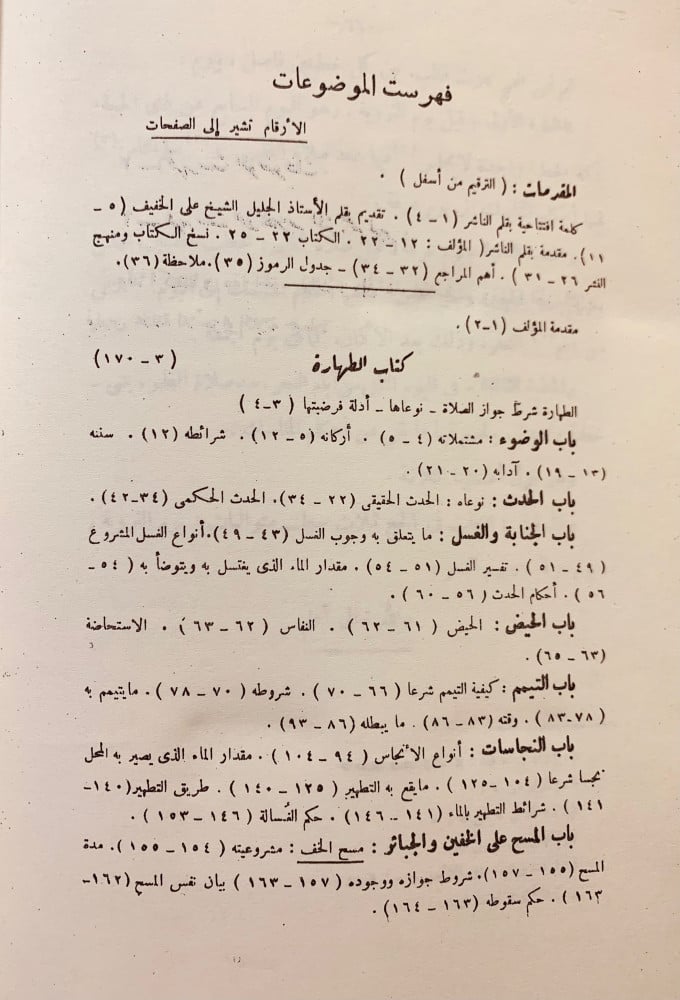 فهرست الموضوعات
الأرقام تشير إلى الصفحات
المقدمات : ( الترقيم من أسفل ) .
كلمة افتتاحية بقلم الناشر (١ – ٤) . تقديم بقلم الأستاذ الجليل الشيخ على الخفيف (٥ –
١١). مقدمة بقلم الناشر( المؤلف : ١٢ – ٢٢ . الكتاب ٢٢ – ٢٥ . نسخ الكتاب ومنهج
النشر ٢٦ – ٣١ ) . أهم المراجع (٣٢ – ٣٤) – جدول الرموز (٣٥).ملاحظة (٣٦).
مقدمة المؤلف (١–٢).
كتاب الطهارة (٣ – ١٧٠)
الطهارة شرط جواز الصلاة – نوعاها – أدلة فرضيتها (٣–٤)
باب الوضوء : مشتملاته (٤ – ٥) . أركانه (٥ – ١٢) . شرائطه (١٢) . سننه
(١٣ – ١٩) . آدابه (٢٠ – ٢١) .
باب الحدث : نوعاه : الحدث الحقيقى (٢٢ – ٣٤). الحدث الحكمى (٣٤–٤٢) .
باب الجنابة والغسل : ما يتعلق به وجوب الغسل (٤٣ – ٤٩).أنواع الغسل المشروع
(٤٩ – ٥١) . تفسير الغسل (٥١ – ٥٤) . مقدار الماء الذى يغتسل به ويتوضأ به (٥٤ –
٥٦) . أحكام الحدث (٥٦ – ٦٠) .
باب الحيض : الحيض (٦١ – ٦٢) . النفاس (٦٢ – ٦٣) . الاستحاضة
(٦٣ – ٦٥) .
باب التيمم : كيفية التيمم شرعا (٦٦ – ٧٠) . شروطه (٧٠ – ٧٨) . مايتيمم به
(٧٨–٨٣) . وقته (٨٣ – ٨٦) . ما يبطله (٨٦ – ٩٣) .
باب النجاسات : أنواع الأنجاس (٩٤ – ١٠٤) . مقدار الماء الذى يصير به المحل
نجسا شرعا (١٠٤ –١٢٥) . مايقع به التطهير (١٢٥ – ١٤٠) . طريق التطهير(١٤٠–
١٤١) . شرائط التطهير بالماء (١٤١ – ١٤٦) . حكم الغُسالة (١٤٦ – ١٥٣) .
باب المسح على الخفين والجبائر : مسح الخف : مشروعيته (١٥٤ – ١٥٥). مدة
المسح (١٥٥ – ١٥٧). شروط جوازه ووجوده (١٥٧ – ١٦٣) بيان نفس المسح (١٦٢–
١٦٣) . حكم سقوطه (١٦٣ – ١٦٤) .